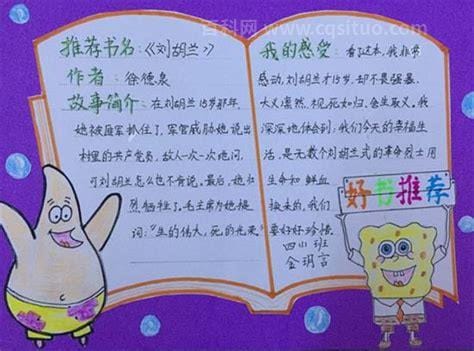 百科网 www.cqsituo.com
推荐书名:《刘胡兰》
作者:徐德泉
故事简介:在刘胡兰15岁那年,
她被匪军抓住了,军官威胁她说出
村里的共产党员,敌人一次一次地问,
可刘胡兰怎么也不肯说。最后,她壮
烈牺牲了。毛主席为她提
词:"生的伟大,死的光荣"
我的感受:看了这本,我非常
感动,刘胡兰才15岁,却不畏强暴、
大义凛然、视死如归、舍生取义。我
深深地体会到:我们今天的幸福生
活,是无数个刘胡兰式的革命烈士用
生命和鲜血
换来的,我们
要好好珍惜。
四(1)班
金玥言
好书推荐